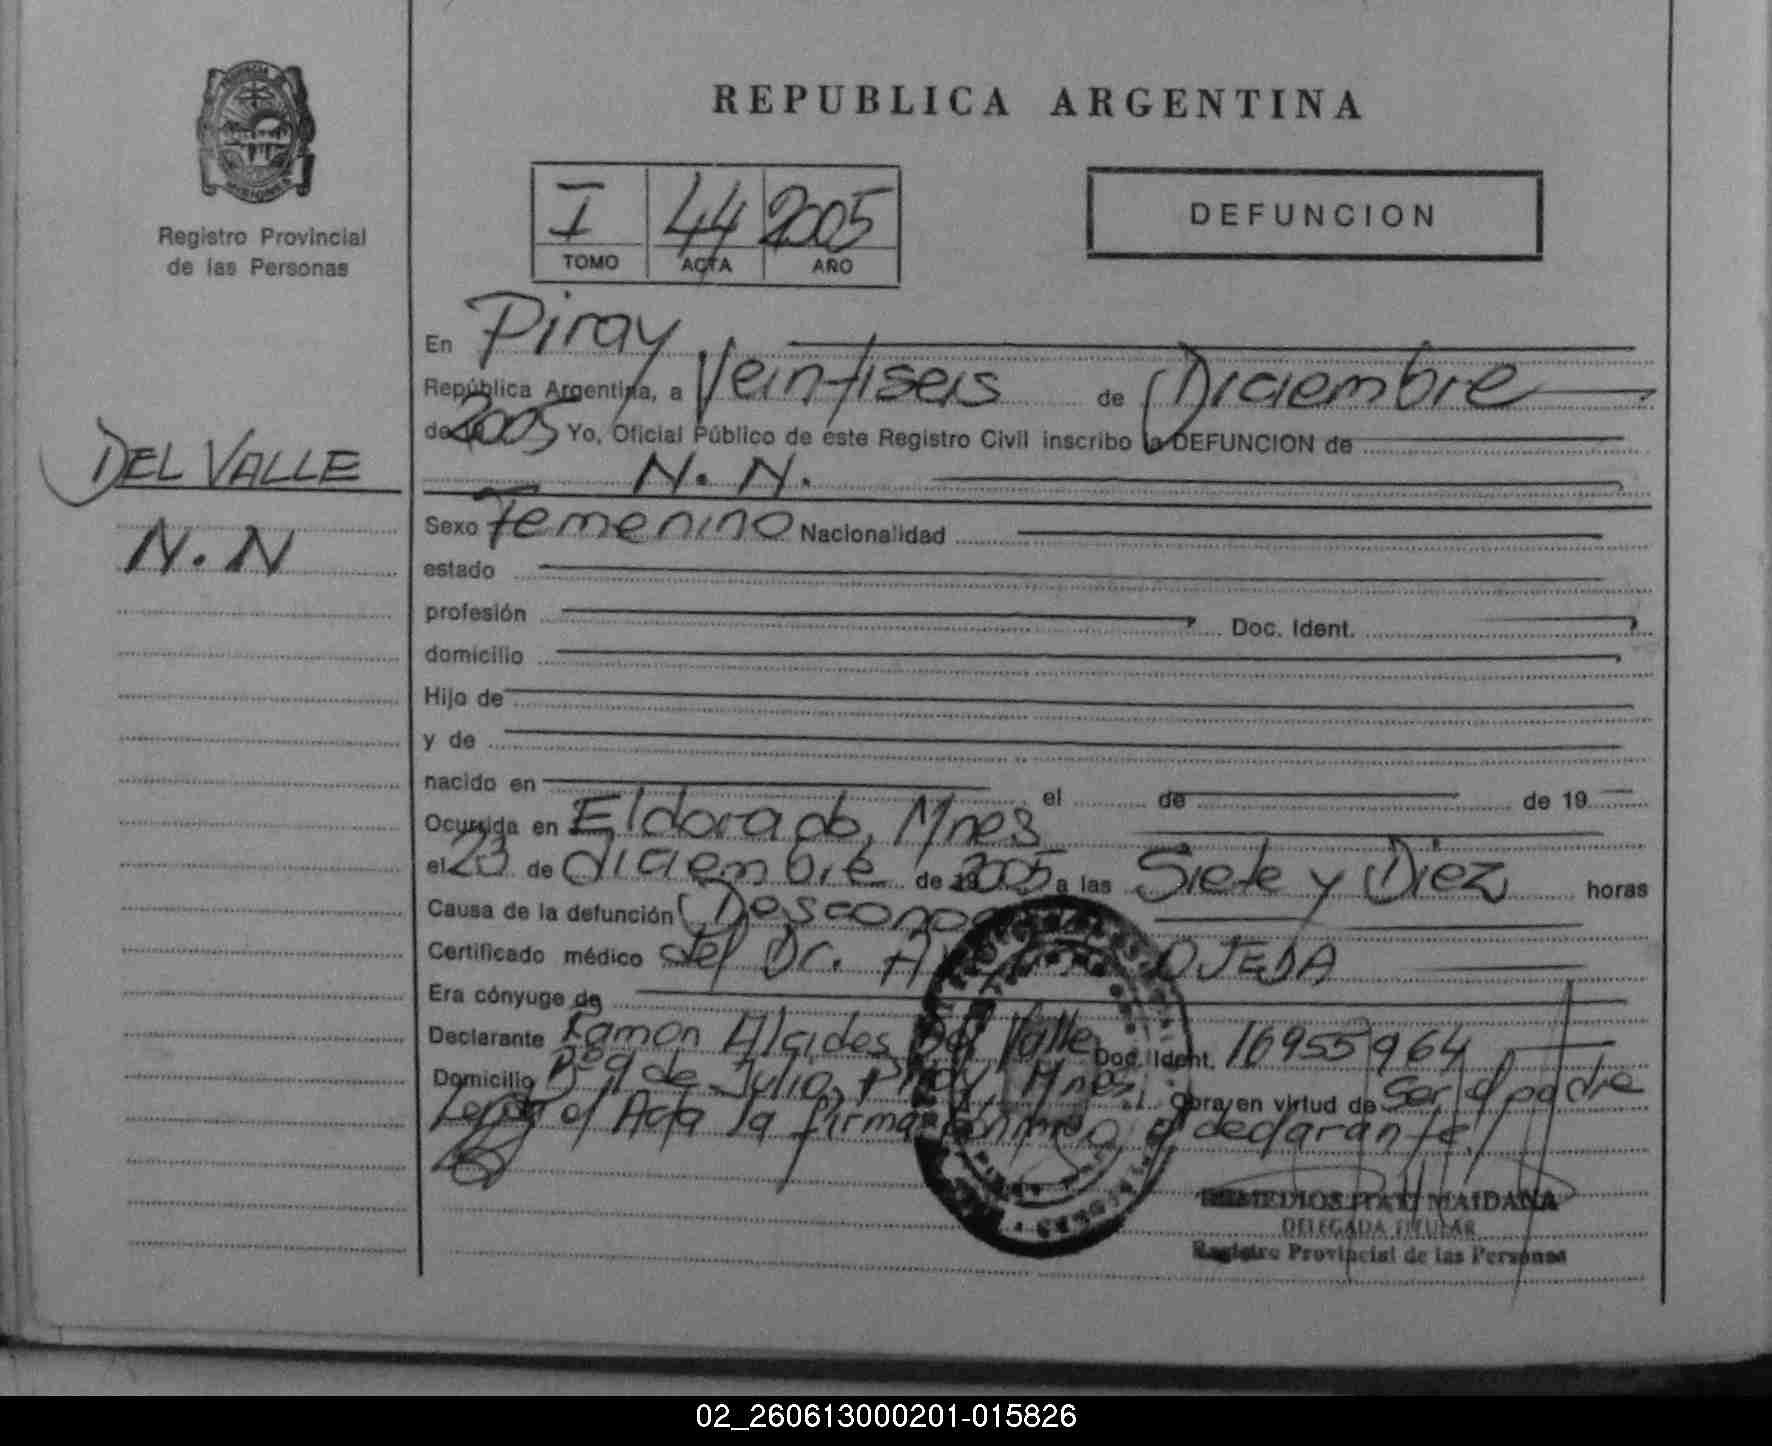 PROVINCIA DE
MISIONES
Registro Provincial
de las Personas
REPUBLICA ARGENTINA
I 44 2005
TOMO ACTA AÑO
DEFUNCION
En Piray
República Argentina, a Veintiseis de Diciembre
de 2005 Yo, Oficial Público de este Registro Civil inscribo la DEFUNCION de
DEL VALLE
N. N.
N.N
Sexo Femenino Nacionalidad
estado
profesión Doc. Ident.
domicilio
Hijo de
y de
nacido en el de de 19
Ocurrida en Eldorado, Mnes
el 23 de diciembre de 2005 a las Siete y Diez horas
Causa de la defunción
Certificado médico del Dr. OJEDA
Era cónyuge de
Declarante Ramon Alcides Del Valle Doc. Ident. 16955964
Domicilio Bº 9 de Julio, Piray, Mnes. Obra en virtud de Ser el padre
el Acta la firma conmigo el declarante.
REMEDIOS ITATI MAIDANA
DELEGADA TITULAR
Registro Provincial de las Personas
02_260613000201-015826